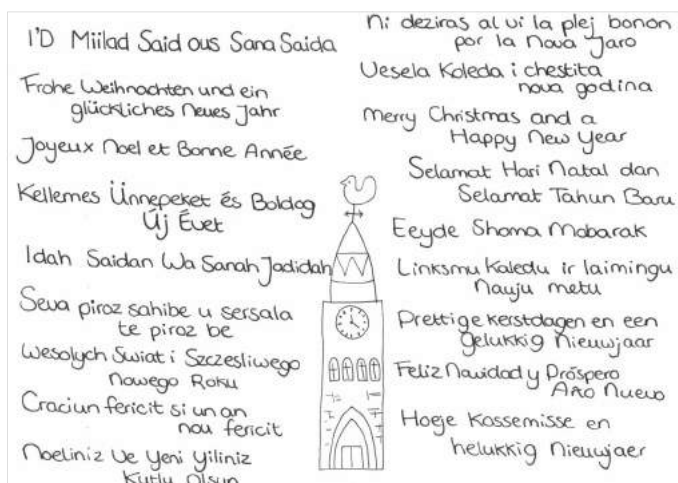 I'D Miilad Said ous Sana Saida
Frohe Weihnachten und ein
glückliches Neues Jahr
Joyeux Noel et Bonne Année
Kellemes Ünnepeket és Boldog
Új Évet
Idah Saidan Wa Sanah Jadidah
Seva piroz sahibe u sersala
te piroz be
Wesolych Swiat i Szczesliwego
Nowego Roku
Craciun fericit si un an
nou fericit
Noeliniz Ve Yeni Yiliniz
Kutlu Olsun
Ni deziras al vi la plej bonan
por la Nova Jaro
Vesela Koleda i chestita
nova godina
Merry Christmas and a
Happy New Year
Selamat Hari Natal dan
Selamat Tahun Baru
Eeyde Shoma Mobarak
Linksmu Kaledu ir laimingu
nauju metu
Prettige kerstdagen en een
gelukkig Nieuwjaar
Feliz Navidad y Próspero
Año Nuevo
Hoeje Kossemisse en
helukkig Nieuwjaer